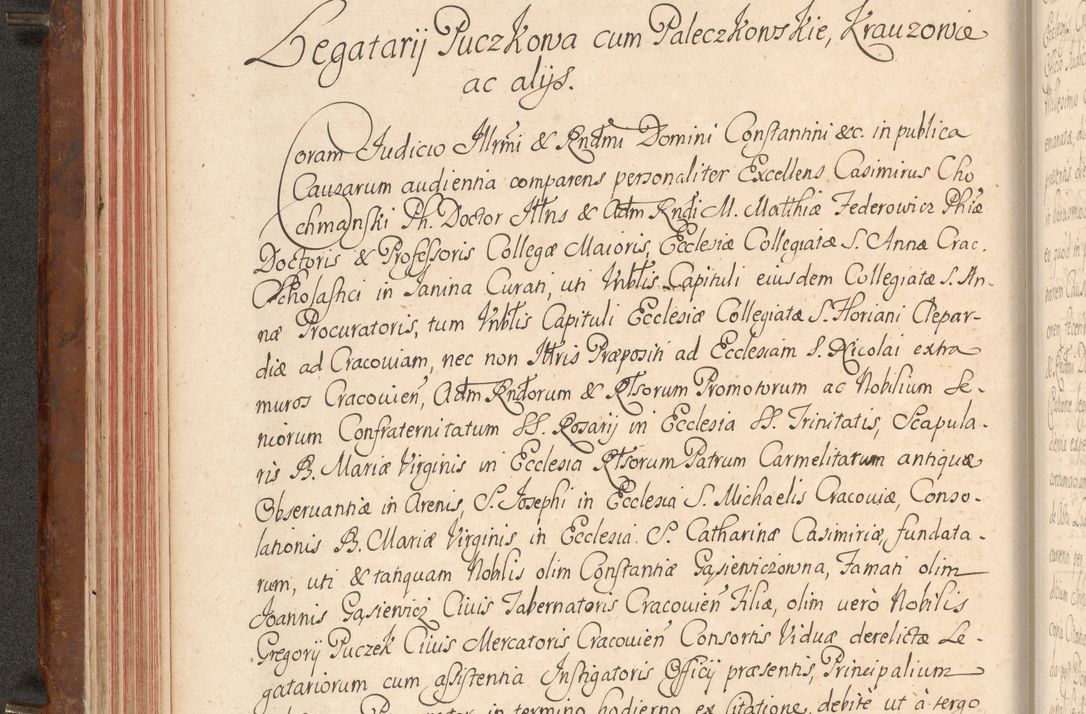 Legatarij Puczkowa cum Paleczkowskie, Krauzowie
ac alijs.
Coram Judicio Illrmi & Rndmi Domini Constantini &c. in publica
Causarum audientia comparens personaliter Excellens Casimirus Cho
chmański Ph. Doctor Illris & Adm Rndi M. Matthiæ Federowicz Phiæ
Doctoris & Professoris Collegæ Maioris, Ecclesiæ Collegiatæ S. Annæ Crac.
Scholastici in Janina Curati, uti Vnblis Capituli eiusdem Collegiatæ S. An-
næ Procuratoris, tum Vnblis Capituli Ecclesiæ Collegiatæ S. Floriani Clepar-
diæ ad Cracoviam, nec non Illris Præpositi ad Ecclesiam S. Nicolai extra
muros Cracovień, Adm Rndorum & Rlsorum Promotorum ac Nobilium Se-
niorum Confraternitatum SS. Rosarij in Ecclesia SS. Trinitatis, Scapula-
ris B. Mariæ Virginis in Ecclesia Rlsorum Patrum Carmelitarum antiquæ
Observantiæ in Arenis, S. Josephi in Ecclesia S. Michaelis Cracoviæ, Conso-
lationis B. Mariæ Virginis in Ecclesia S. Catharinæ Casimiriæ, fundata-
rum, uti & tanquam Noblis olim Constantiæ Gąsiewiczowna, Famati olim
Joannis Gąsiewicz Civis Tabernatoris Cracovień Filiæ, olim verò Nobilis
Gregorij Puczek Civis Mercatoris Cracovień Consortis Viduæ derelictæ Le-
gatariorum cum assistentia Instigatoris Officij præsentis, Principalium
Procurator in termino hodierno ex Citatione debitè ut à tergo